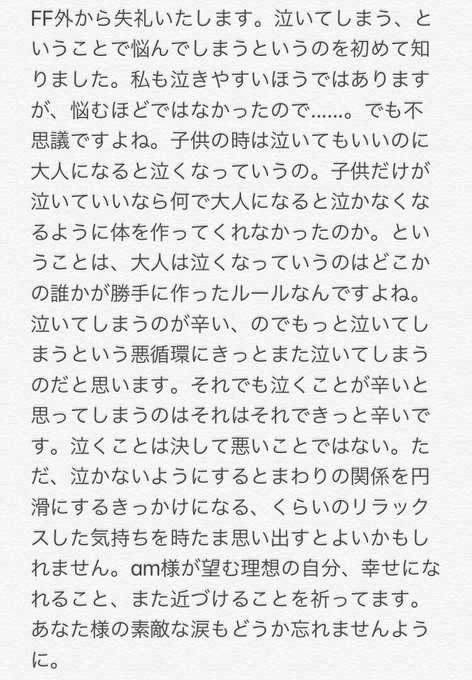 FF外から失礼いたします。泣いてしまう、と
いうことで悩んでしまうというのを初めて知
りました。私も泣きやすいほうではあります
が、悩むほどではなかったので……。でも不
思議ですよね。子供の時は泣いてもいいのに
大人になると泣くなっていうの。子供だけが
泣いていいなら何で大人になると泣かなくな
るように体を作ってくれなかったのか。とい
うことは、大人は泣くなっていうのはどこか
の誰かが勝手に作ったルールなんですよね。
泣いてしまうのが辛い、のでもっと泣いてし
まうという悪循環にきっとまた泣いてしまう
のだと思います。それでも泣くことが辛いと
思ってしまうのはそれはそれできっと辛いで
す。泣くことは決して悪いことではない。た
だ、泣かないようにするとまわりの関係を円
滑にするきっかけになる、くらいのリラック
スした気持ちを時たま思い出すとよいかもし
れません。am様が望む理想の自分、幸せにな
れること、また近づけることを祈ってます。
あなた様の素敵な涙もどうか忘れませんよう
に。